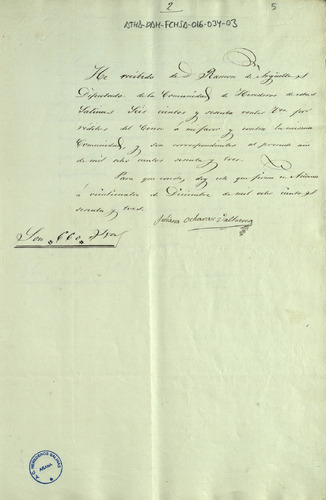 2
5
ATHA-DAH-FCHSA-016-034-03
He recibido de D. Ramon de
Diputado de la Comunidad de Herederos de estas
Salinas Seis cientos y sesenta reales Von por
réditos del Censo á mi favor y contra la misma
Comunidad, y son correspondientes al presente año
de mil ocho cientos sesenta y tres.
Para que conste, doy este que firmo en Añana
á veinticuatro de Diciembre de mil ocho cientos
sesenta y tres.
Juliana Ochavarri Valluerca
Son, 660, rvon
A.C. HEREDEROS SALINAS
AÑANA